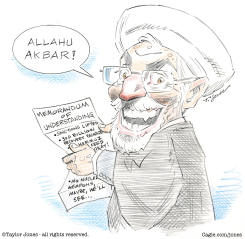 ALLAHU
AKBAR!
MEMORANDUM
OF
UNDERSTANDING
•SANCTIONS LIFTED
RECOVERY
•NO NUCLEAR
WEAPONS,
MAYBE, WE'LL
SEE...
©Taylor Jones - all rights reserved.
Cagle.com/jones